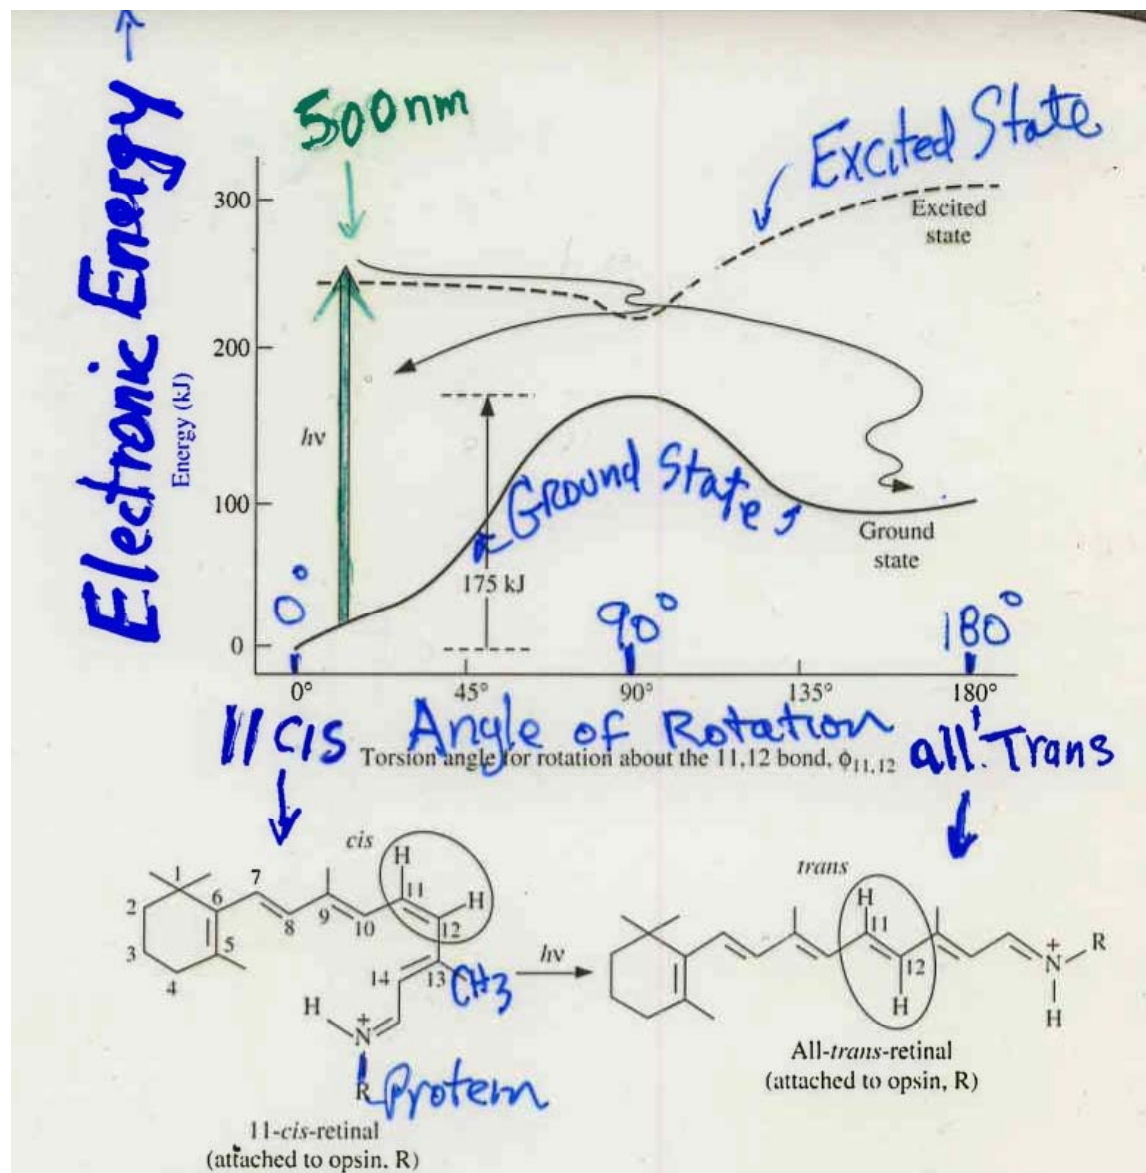 Electronic Energy →
500nm
Excited State
Excited
state
300
200
100
0
Energy (kJ)
hν
Ground State
175 kJ
Ground
state
0°
90°
180°
0°
45°
90°
135°
180°
11 cis
Angle of Rotation
all Trans
Torsion angle for rotation about the 11,12 bond, ϕ11,12
cis
H
11
H
12
1
2
3
4
5
6
7
8
9
10
13
14
CH3
H
+
N
R
Protein
11-cis-retinal
(attached to opsin, R)
hν
trans
H
11
12
H
+
N
R
H
All-trans-retinal
(attached to opsin, R)